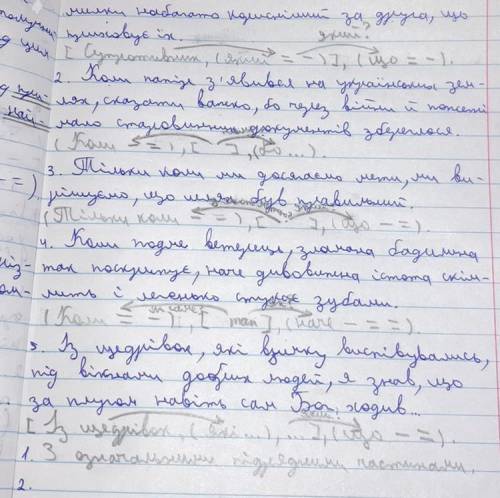 милки набагато корисніший за друга, що
приховує їх.
який?
[Супротивник, (який = –)], (що = –).
2. Коли папір з'явився на українських зем-
лях, сказати важко, бо через війни й пожежі
мало старовинних документів збереглося.
(Коли – =), [ ], (бо ...).
3. Тільки коли ми досягаємо мети, ми ви-
рішуємо, що шлях був правильний.
(Тільки коли = =), [ ], (що – =).
4. Коли подме ветерець, зламана бадилина
так поскрипує, наче дивовижна істота скім-
лить і легенько стукає зубами.
(Коли = –), [ так ], (наче – = =).
5. Із щедрівок, які взимку виспівувались,
під вікнами добрих людей, я знав, що
за плугом навіть сам Бог, ходив...
[Із щедрівок, (які ...), ...], (що – =).
1. З означальними підрядними частинами.
2.